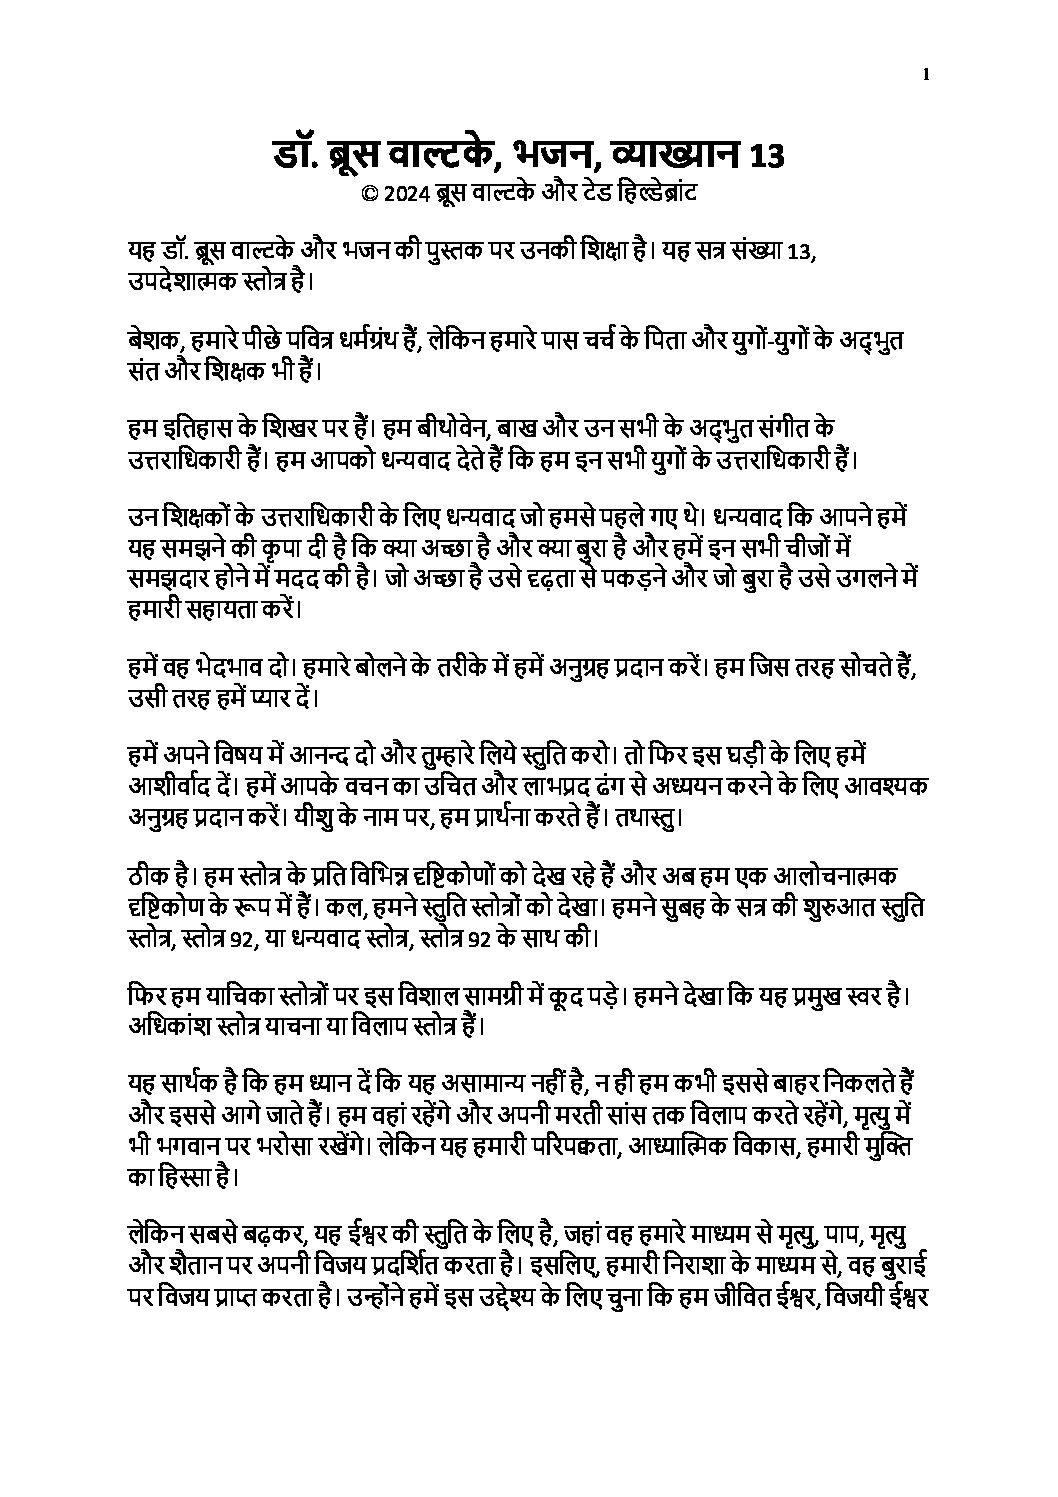 1
डॉ. ब्रूस वाल्टके, भजन, व्याख्यान 13
© 2024 ब्रूस वाल्टके और टेड हिल्डेब्रांट
यह डॉ. ब्रूस वाल्टके और भजन की पुस्तक पर उनकी शिक्षा है। यह सत्र संख्या 13,
उपदेशात्मक स्तोत्र है।
बेशक, हमारे पीछे पवित्र धर्मग्रंथ हैं, लेकिन हमारे पास चर्च के पिता और युगों-युगों के अद्भुत
संत और शिक्षक भी हैं।
हम इतिहास के शिखर पर हैं। हम बीथोवेन, बाख और उन सभी के अद्भुत संगीत के
उत्तराधिकारी हैं। हम आपको धन्यवाद देते हैं कि हम इन सभी युगों के उत्तराधिकारी हैं।
उन शिक्षकों के उत्तराधिकारी के लिए धन्यवाद जो हमसे पहले गए थे। धन्यवाद कि आपने हमें
यह समझने की कृपा दी है कि क्या अच्छा है और क्या बुरा है और हमें इन सभी चीजों में
समझदार होने में मदद की है। जो अच्छा है उसे दृढ़ता से पकड़ने और जो बुरा है उसे उगलने में
हमारी सहायता करें।
हमें वह भेदभाव दो। हमारे बोलने के तरीके में हमें अनुग्रह प्रदान करें। हम जिस तरह सोचते हैं,
उसी तरह हमें प्यार दें।
हमें अपने विषय में आनन्द दो और तुम्हारे लिये स्तुति करो। तो फिर इस घड़ी के लिए हमें
आशीर्वाद दें। हमें आपके वचन का उचित और लाभप्रद ढंग से अध्ययन करने के लिए आवश्यक
अनुग्रह प्रदान करें। यीशु के नाम पर, हम प्रार्थना करते हैं। तथास्तु।
ठीक है। हम स्तोत्र के प्रति विभिन्न दृष्टिकोणों को देख रहे हैं और अब हम एक आलोचनात्मक
दृष्टिकोण के रूप में हैं। कल, हमने स्तुति स्तोत्रों को देखा। हमने सुबह के सत्र की शुरुआत स्तुति
स्तोत्र, स्तोत्र 92, या धन्यवाद स्तोत्र, स्तोत्र 92 के साथ की।
फिर हम याचिका स्तोत्रों पर इस विशाल सामग्री में कूद पड़े। हमने देखा कि यह प्रमुख स्वर है।
अधिकांश स्तोत्र याचना या विलाप स्तोत्र हैं।
यह सार्थक है कि हम ध्यान दें कि यह असामान्य नहीं है, न ही हम कभी इससे बाहर निकलते हैं
और इससे आगे जाते हैं। हम वहां रहेंगे और अपनी मरती सांस तक विलाप करते रहेंगे, मृत्यु में
भी भगवान पर भरोसा रखेंगे। लेकिन यह हमारी परिपक्वता, आध्यात्मिक विकास, हमारी मुक्ति
का हिस्सा है।
लेकिन सबसे बढ़कर, यह ईश्वर की स्तुति के लिए है, जहां वह हमारे माध्यम से मृत्यु, पाप, मृत्यु
और शैतान पर अपनी विजय प्रदर्शित करता है। इसलिए, हमारी निराशा के माध्यम से, वह बुराई
पर विजय प्राप्त करता है। उन्होंने हमें इस उद्देश्य के लिए चुना कि हम जीवित ईश्वर, विजयी ईश्वर